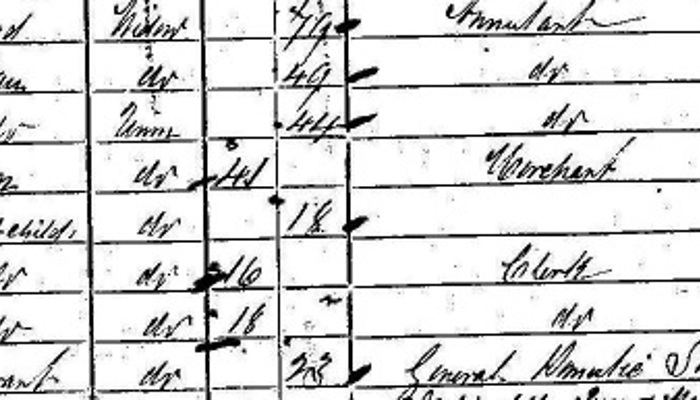 d Widow 79 Annuitant
do 49 do
Unm 44 do
do 41 Merchant
child do 18
do 16 Clerk
do 18 do
vant do 23 General Domestic